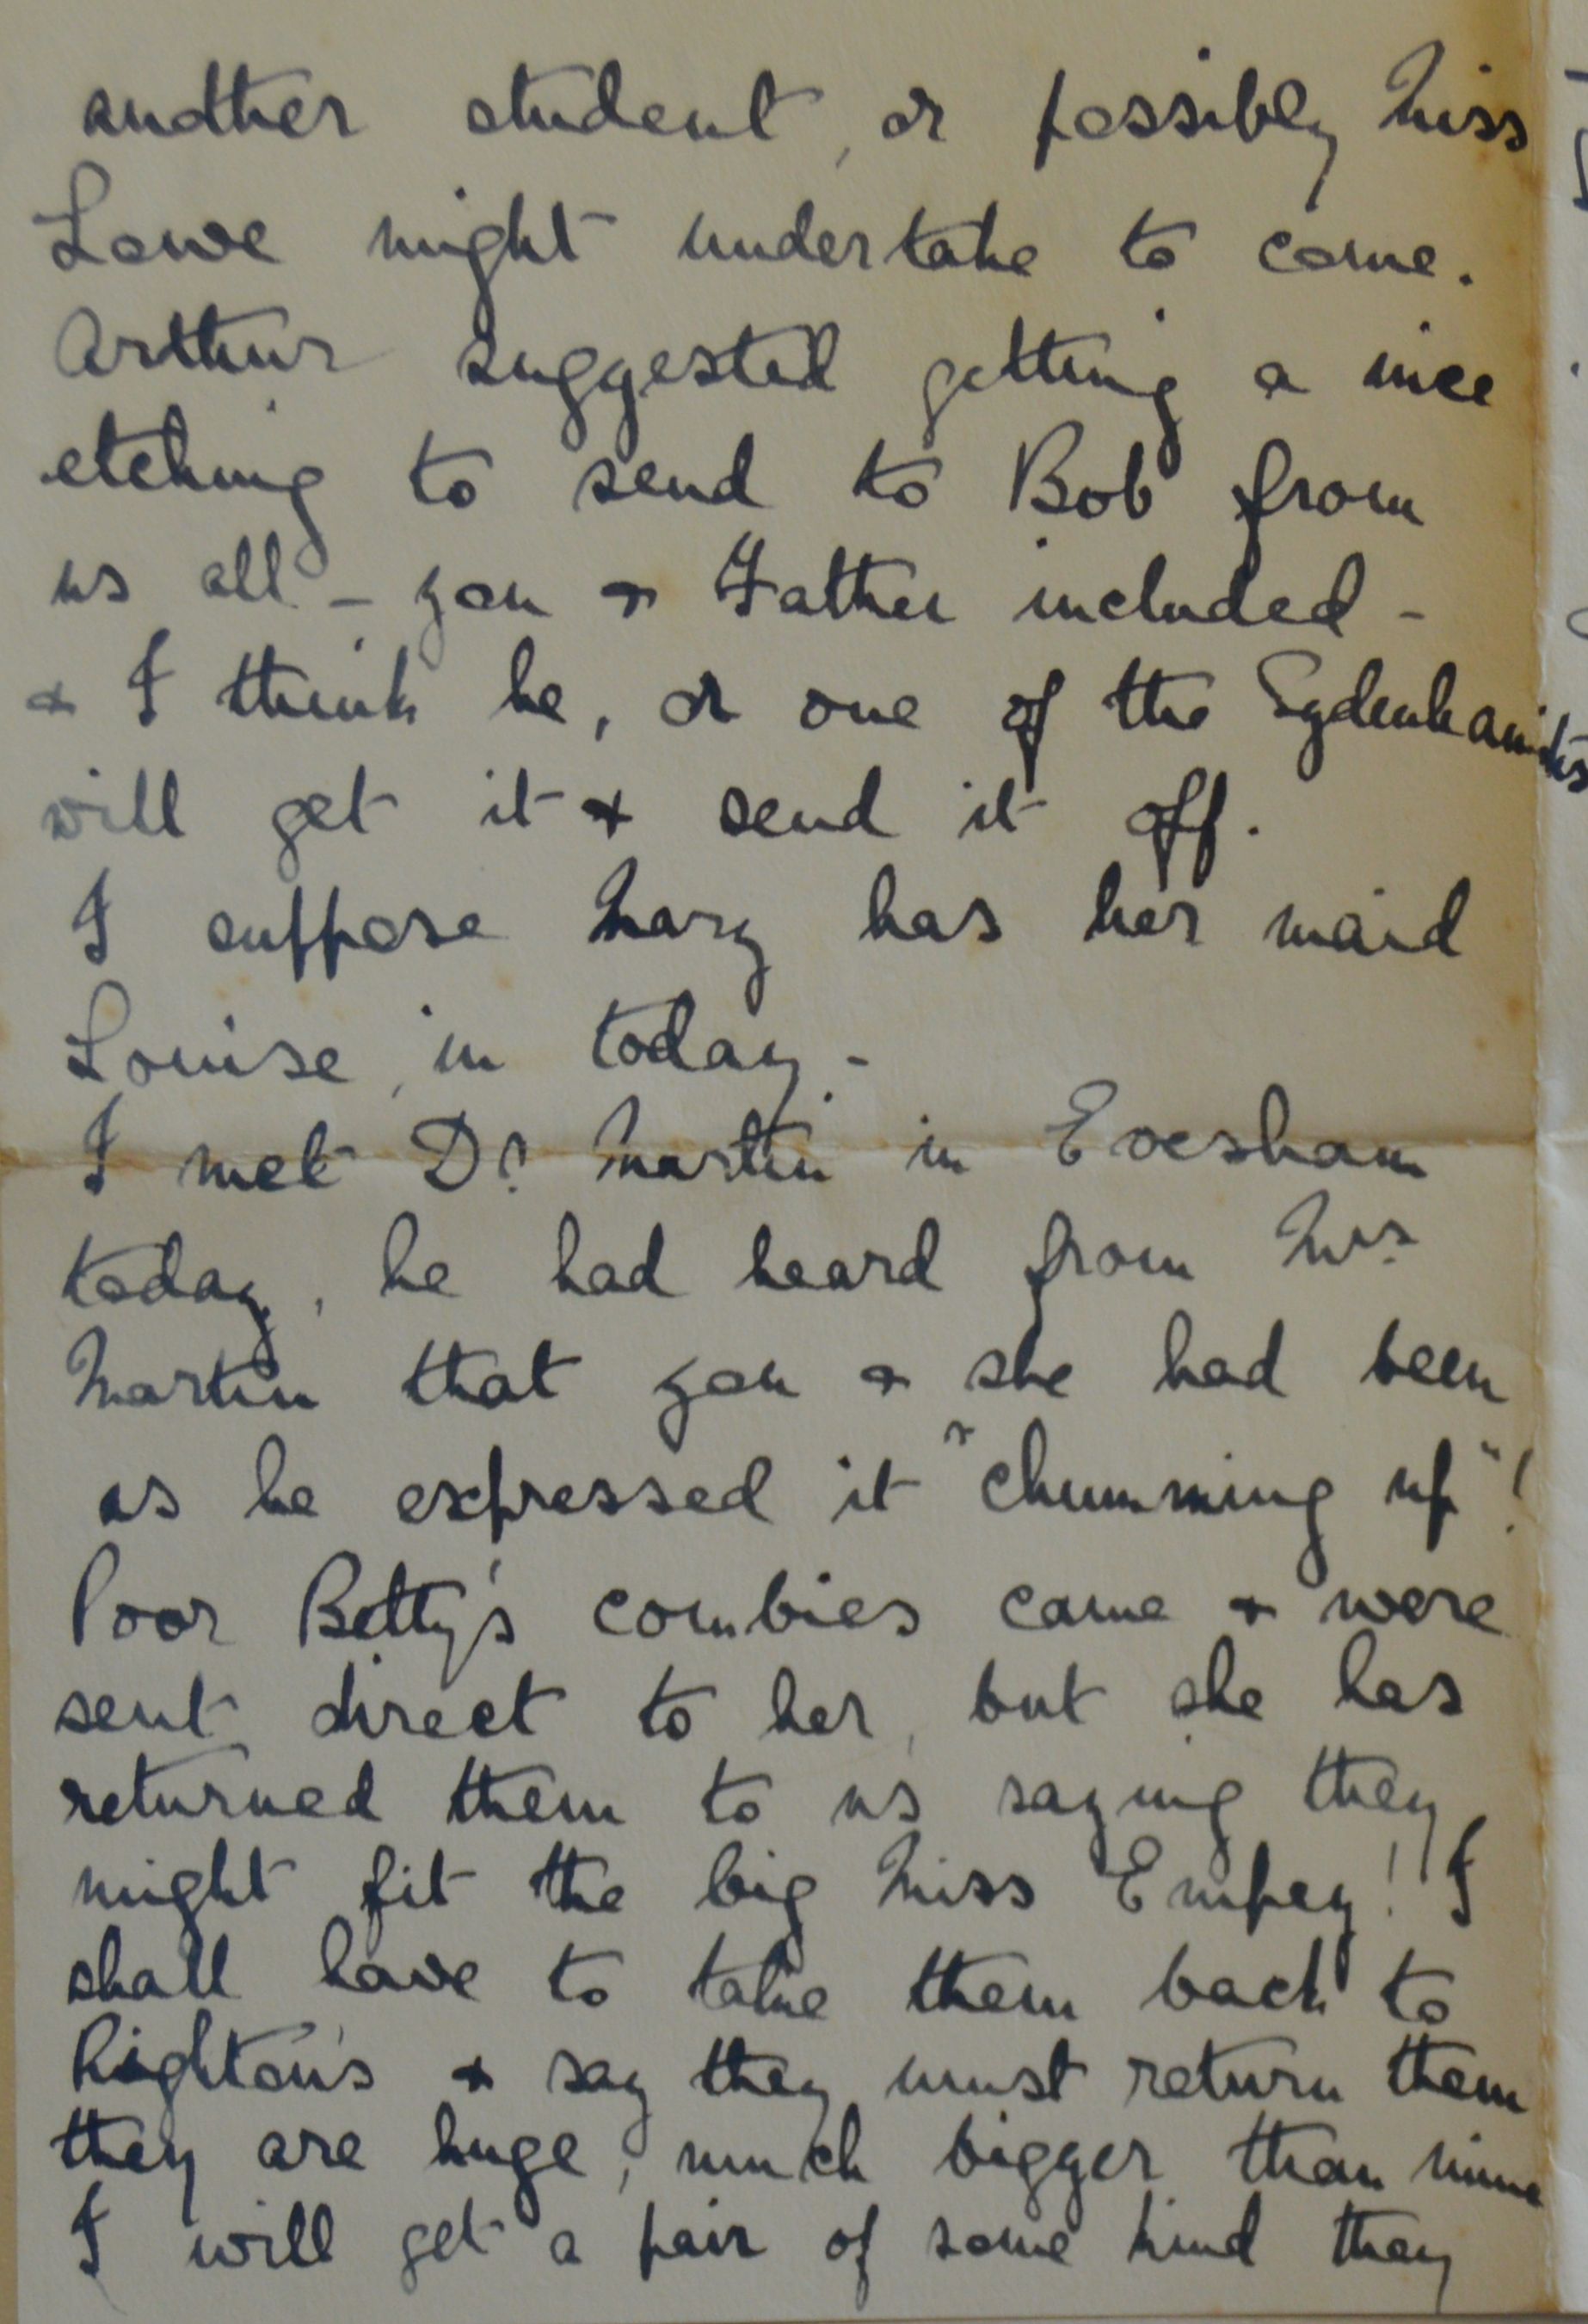 another student, or possibly Miss
Lowe might undertake to come.
Arthur suggested getting a nice
etching to send to Bob from
us all - you & Father included -
& I think he, or one of the Sydenhamites
will get it & send it off.
I suppose Mary has her maid
Louise, in today -
I met Dr. Martin in Evesham
today, he had heard from Mrs.
Martin that you & she had been
as he expressed it "chumming up"!
Poor Betty's combies came & were
sent direct to her, but she has
returned them to us saying they
might fit the big Miss Empey! I
shall have to take them back to
Righton's & say they must return them
they are huge, much bigger than mine
I will get a pair of some kind they